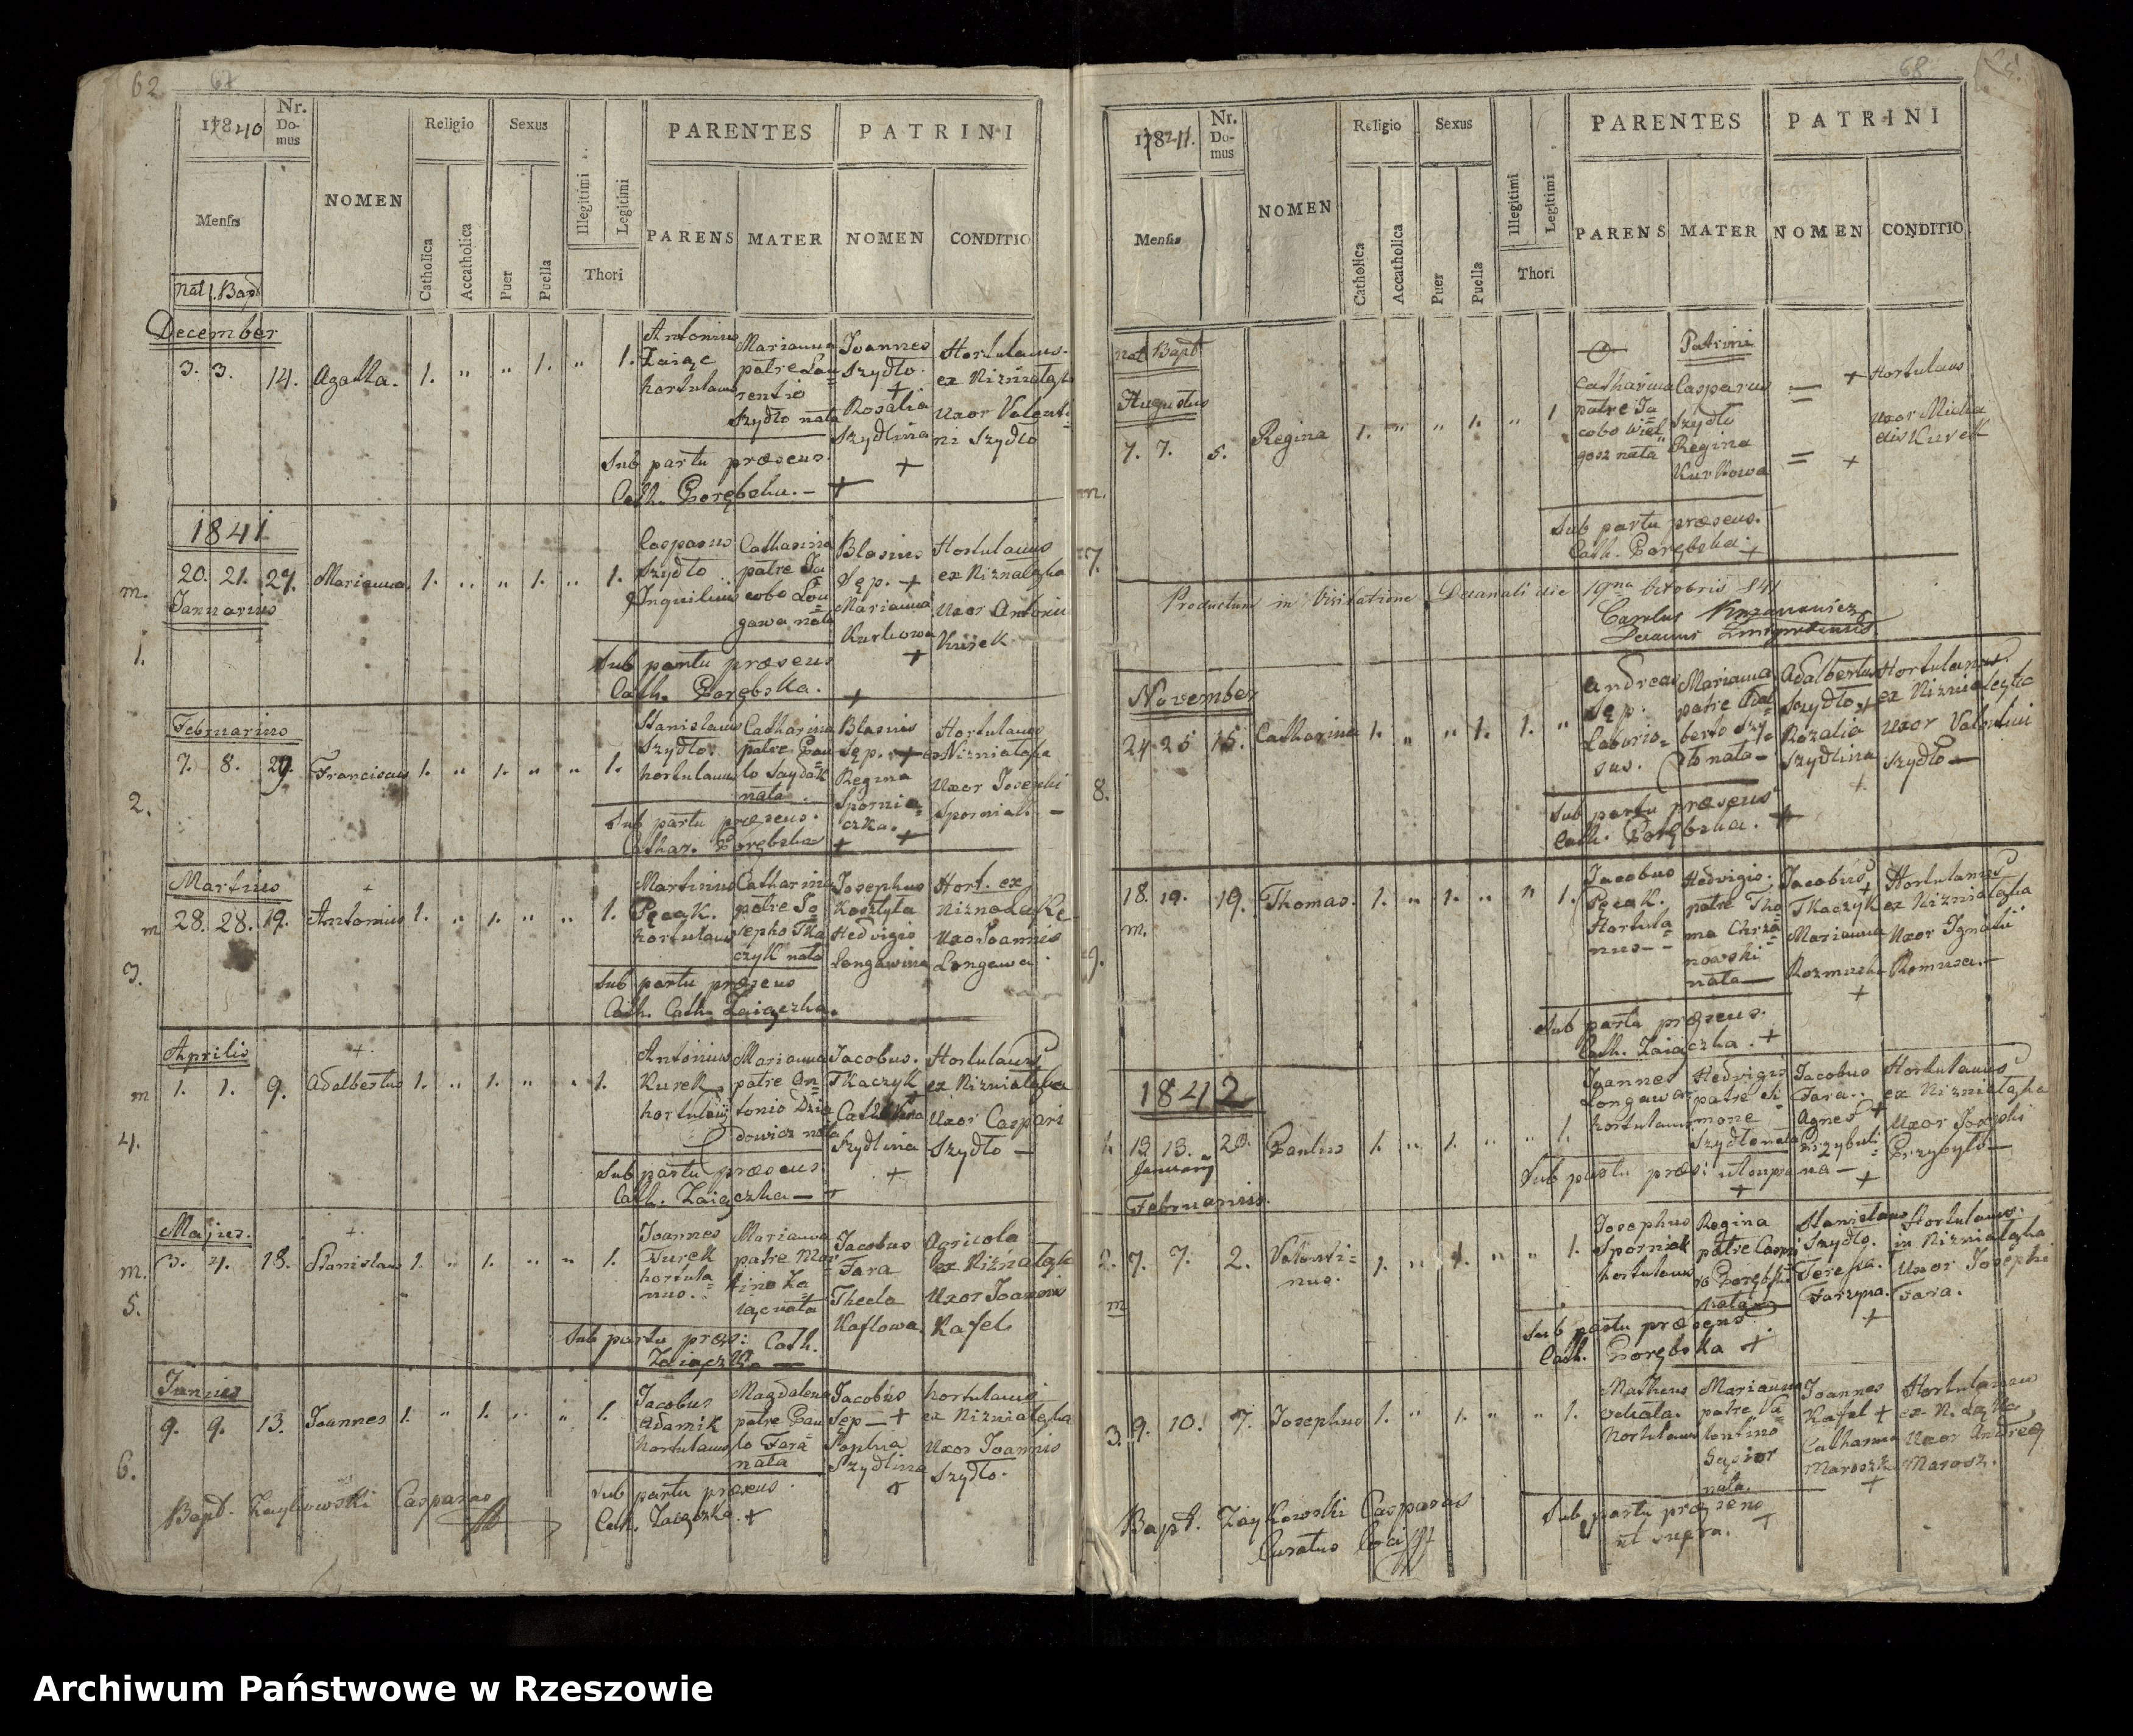 62 67
17840
Nr. Domus
NOMEN
Religio
Sexus
PARENTES
PATRINI
Mensis
Catholica
Accatholica
Puer
Puella
Illegitimi
Legitimi
Thori
PARENS
MATER
NOMEN
CONDITIO
Nat. Bapt
December
3. 3. 14. Agatha. 1. " " 1. " 1.
Antonius Zaiąc hortulanus
Marianna patre Lau=rentio Szydło nata
Joannes Szydło +
Rosalia Szydlina +
Hortulanus ex Nizniałęka
Uxor Valenti=ni Szydło
Sub partu præsens.
Cath. Porębska. – +
1841
m. 20. 21. 27. Marianna 1. " " 1. " 1.
Januarius
1.
Casparus Szydło Inquilinus
Catharina patre Jacobo Lon=gawa nata
Blasius Sęp. +
Marianna Kurkowa +
Hortulanus ex Niznałęka
Uxor Antonii Kurek
Sub partu præsens
Cath. Porębska. +
Februarius
7. 8. 29. Franciscus 1. " 1. " " 1.
2.
Stanislaus Szydło hortulanus
Catharina patre Pau=lo Saydak nata
Blasius Sęp. +
Regina Spornia=czka. +
Hortulanus ex Nizniałęka
Uxor Josephi Sporniak. –
Sub partu præsens.
Cathar. Porębska +
Martius
m 28. 28. 19. Antonius 1. " 1. " " 1.
3.
Martinus Pęcak. hortulanus
Catharina patre Jo=sepho Tka=czyk nata
Josephus Kosztyła
Hedvigis Longawina
Hort. ex Nizna Łęka
Uxor Joannis Longawa
Sub partu præsens
Cath. Cath. Zaiączka.
Aprilis
m 1. 1. 9. Adalbertus 1. " 1. " " 1.
4.
Antonius Kurek hortulanus
Marianna patre An=tonio Dzia=dowicz nata
Jacobus. Tkaczyk
Catharina Szydlina +
Hortulanus ex Nizniałęka
Uxor Caspari Szydło –
Sub partu præsens.
Cath. Zaiączka – +
Majus.
m. 3. 4. 18. Stanislaus 1. " 1. " " 1.
5.
Joannes Turek hortula=nus.
Marianna patre Mar=tino Za=iąc nata
Jacobus Fara
Thecla Kaflowa
Agricola ex Nizniałęka
Uxor Joannis Kafel
Sub partu præs: Cath.
Zaiączka –
Junius
9. 9. 13. Joannes 1. " 1. " " 1.
6.
Jacobus Adamik hortulanus
Magdalena patre Pau=lo Fara nata
Jacobus Sęp – +
Sophia Szydlina
hortulanus ex Nizniałęka
Uxor Joannis Szydło.
Sub partu præsens.
Cath. Zaiączka. +
Bapt. Zaykowski Casparus
68
17841.
Nr. Domus
NOMEN
Religio
Sexus
PARENTES
PATRINI
Mensis
Catholica
Accatholica
Puer
Puella
Illegitimi
Legitimi
Thori
PARENS
MATER
NOMEN
CONDITIO
nat Bapt
Augustus
7. 7. 5. Regina 1. " " 1. " 1
m.
7.
Catharina patre Ja=cobo Wiel=gosz nata
Patrini
Casparus Szydło
Regina Kurkowa
= +
= +
Hortulanus
uxor Michaelis Kurek
Sub partu præsens.
Cath. Porębska. +
Productum in Visitatione Decanali die 19na Octobris 841
Carolus
Decanus
November
24 25 15. Catharina 1. " " 1. 1. "
8.
Andreas Sęp. Laborio=sus.
Marianna patre Adal=berto Szy=dło nata –
Adalbertus Szydło +
Rozalia Szydlina +
Hortulanus. ex Niznialęka
Uxor Valentini Szydło –
Sub partu præsens
Cath. Porębska. +
18. 19. 19. Thomas. 1. " 1. " " 1.
m.
9.
Jacobus Pęcak. Hortula=nus –
Hedvigis. patre Tho=ma Chrza=nowski nata –
Jacobus Tkaczyk +
Marianna Rozmuska +
Hortulanus ex Nizniałęka
Uxor Ignatii
Sub partu præsens.
Cath. Zaiączka. +
1842
1. 13 13. 23. Paulus 1. " 1. " " 1.
January
Joannes Longawa hortulanus
Hedvigis patre Si=mone Szydło nata
Jacobus Fara. +
Agnes Przybyli= +
Hortulanus ex Nizniałęka
Uxor Josephi Przybyło –
Sub partu præs:
Februarius.
2. 7. 7. 2. Valenti=nus. 1. " 1. " " 1.
m
Josephus Sporniak hortulanus
Regina patre Caspa=ro Porębski nata
Stanislaus Szydło.
Teresia. Farzyna. +
Hortulanus. in Nizniałęka
Uxor Josephi Fara.
Sub partu præsens.
Cath. Porębska +
3. 9. 10. 7. Josephus 1. " 1. " " 1.
Matheus hortulanus
Marianna patre Va=lentino Gąsior nata.
Joannes Kafel +
Catharina +
Hortulanus ex N. Łęka,
Uxor Andreæ Marosz.
Sub partu præsens
ut supra. +
Bapt. Zaykowski Casparus
Curatus Loci
Archiwum Państwowe w Rzeszowie